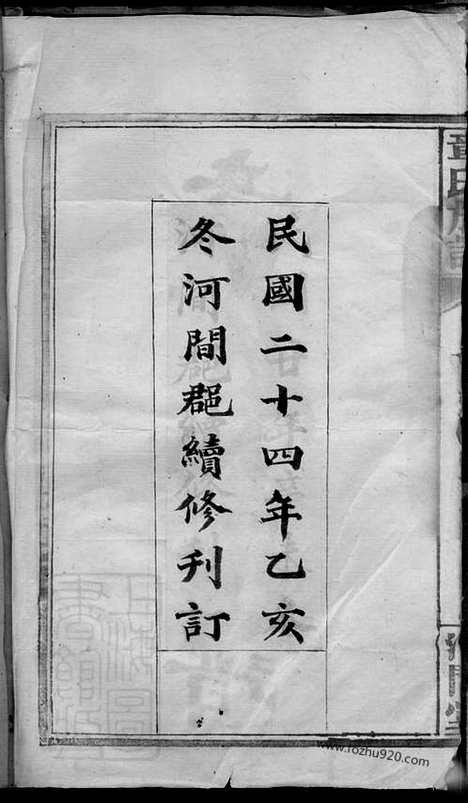 民國二十四年乙亥
冬河間郡續修刊訂
www.rozhu920.com